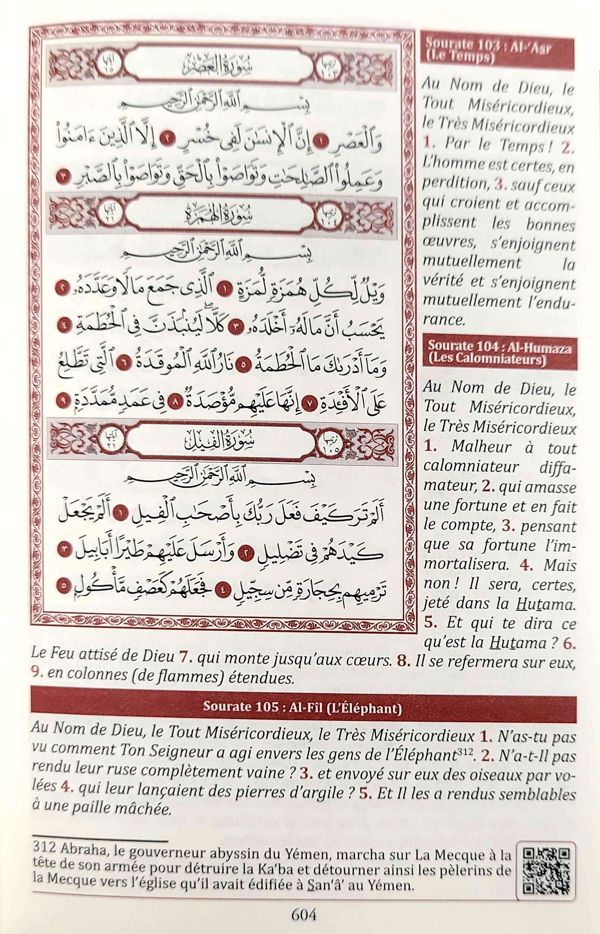 سُورَةُ العَصْرِ
بِسْمِ اللَّهِ الرَّحْمَٰنِ الرَّحِيمِ
وَالْعَصْرِ ١ إِنَّ الْإِنسَٰنَ لَفِى خُسْرٍ ٢ إِلَّا الَّذِينَ ءَامَنُوا
وَعَمِلُوا الصَّٰلِحَٰتِ وَتَوَاصَوْا بِالْحَقِّ وَتَوَاصَوْا بِالصَّبْرِ ٣
سُورَةُ الهُمَزَةِ
بِسْمِ اللَّهِ الرَّحْمَٰنِ الرَّحِيمِ
وَيْلٌ لِّكُلِّ هُمَزَةٍ لُّمَزَةٍ ١ الَّذِى جَمَعَ مَالًا وَعَدَّدَهُۥ ٢
يَحْسَبُ أَنَّ مَالَهُۥٓ أَخْلَدَهُۥ ٣ كَلَّا ۖ لَيُنۢبَذَنَّ فِى الْحُطَمَةِ ٤
وَمَآ أَدْرَىٰكَ مَا الْحُطَمَةُ ٥ نَارُ اللَّهِ الْمُوقَدَةُ ٦ الَّتِى تَطَّلِعُ
عَلَى الْأَفْـِٔدَةِ ٧ إِنَّهَا عَلَيْهِم مُّؤْصَدَةٌ ٨ فِى عَمَدٍ مُّمَدَّدَةٍۭ ٩
سُورَةُ الفِيلِ
بِسْمِ اللَّهِ الرَّحْمَٰنِ الرَّحِيمِ
أَلَمْ تَرَ كَيْفَ فَعَلَ رَبُّكَ بِأَصْحَٰبِ الْفِيلِ ١ أَلَمْ يَجْعَلْ
كَيْدَهُمْ فِى تَضْلِيلٍ ٢ وَأَرْسَلَ عَلَيْهِمْ طَيْرًا أَبَابِيلَ ٣
تَرْمِيهِم بِحِجَارَةٍ مِّن سِجِّيلٍ ٤ فَجَعَلَهُمْ كَعَصْفٍ مَّأْكُولٍۭ ٥
Sourate 103 : Al-‘Aṣr
(Le Temps)
Au Nom de Dieu, le
Tout Miséricordieux,
le Très Miséricordieux
1. Par le Temps ! 2.
L’homme est certes, en
perdition, 3. sauf ceux
qui croient et accom-
plissent les bonnes
œuvres, s’enjoignent
mutuellement la
vérité et s’enjoignent
mutuellement l’endu-
rance.
Sourate 104 : Al-Humaza
(Les Calomniateurs)
Au Nom de Dieu, le
Tout Miséricordieux,
le Très Miséricordieux
1. Malheur à tout
calomniateur diffa-
mateur, 2. qui amasse
une fortune et en fait
le compte, 3. pensant
que sa fortune l’im-
mortalisera. 4. Mais
non ! Il sera, certes,
jeté dans la Hutama.
5. Et qui te dira ce
qu’est la Hutama ? 6.
Le Feu attisé de Dieu 7. qui monte jusqu’aux cœurs. 8. Il se refermera sur eux,
9. en colonnes (de flammes) étendues.
Sourate 105 : Al-Fîl (L’Éléphant)
Au Nom de Dieu, le Tout Miséricordieux, le Très Miséricordieux 1. N’as-tu pas
vu comment Ton Seigneur a agi envers les gens de l’Éléphant³¹². 2. N’a-t-Il pas
rendu leur ruse complètement vaine ? 3. et envoyé sur eux des oiseaux par vo-
lées 4. qui leur lançaient des pierres d’argile ? 5. Et Il les a rendus semblables
à une paille mâchée.
312 Abraha, le gouverneur abyssin du Yémen, marcha sur La Mecque à la
tête de son armée pour détruire la Ka‘ba et détourner ainsi les pèlerins de
la Mecque vers l’église qu’il avait édifiée à Ṣan‘â’ au Yémen.
604